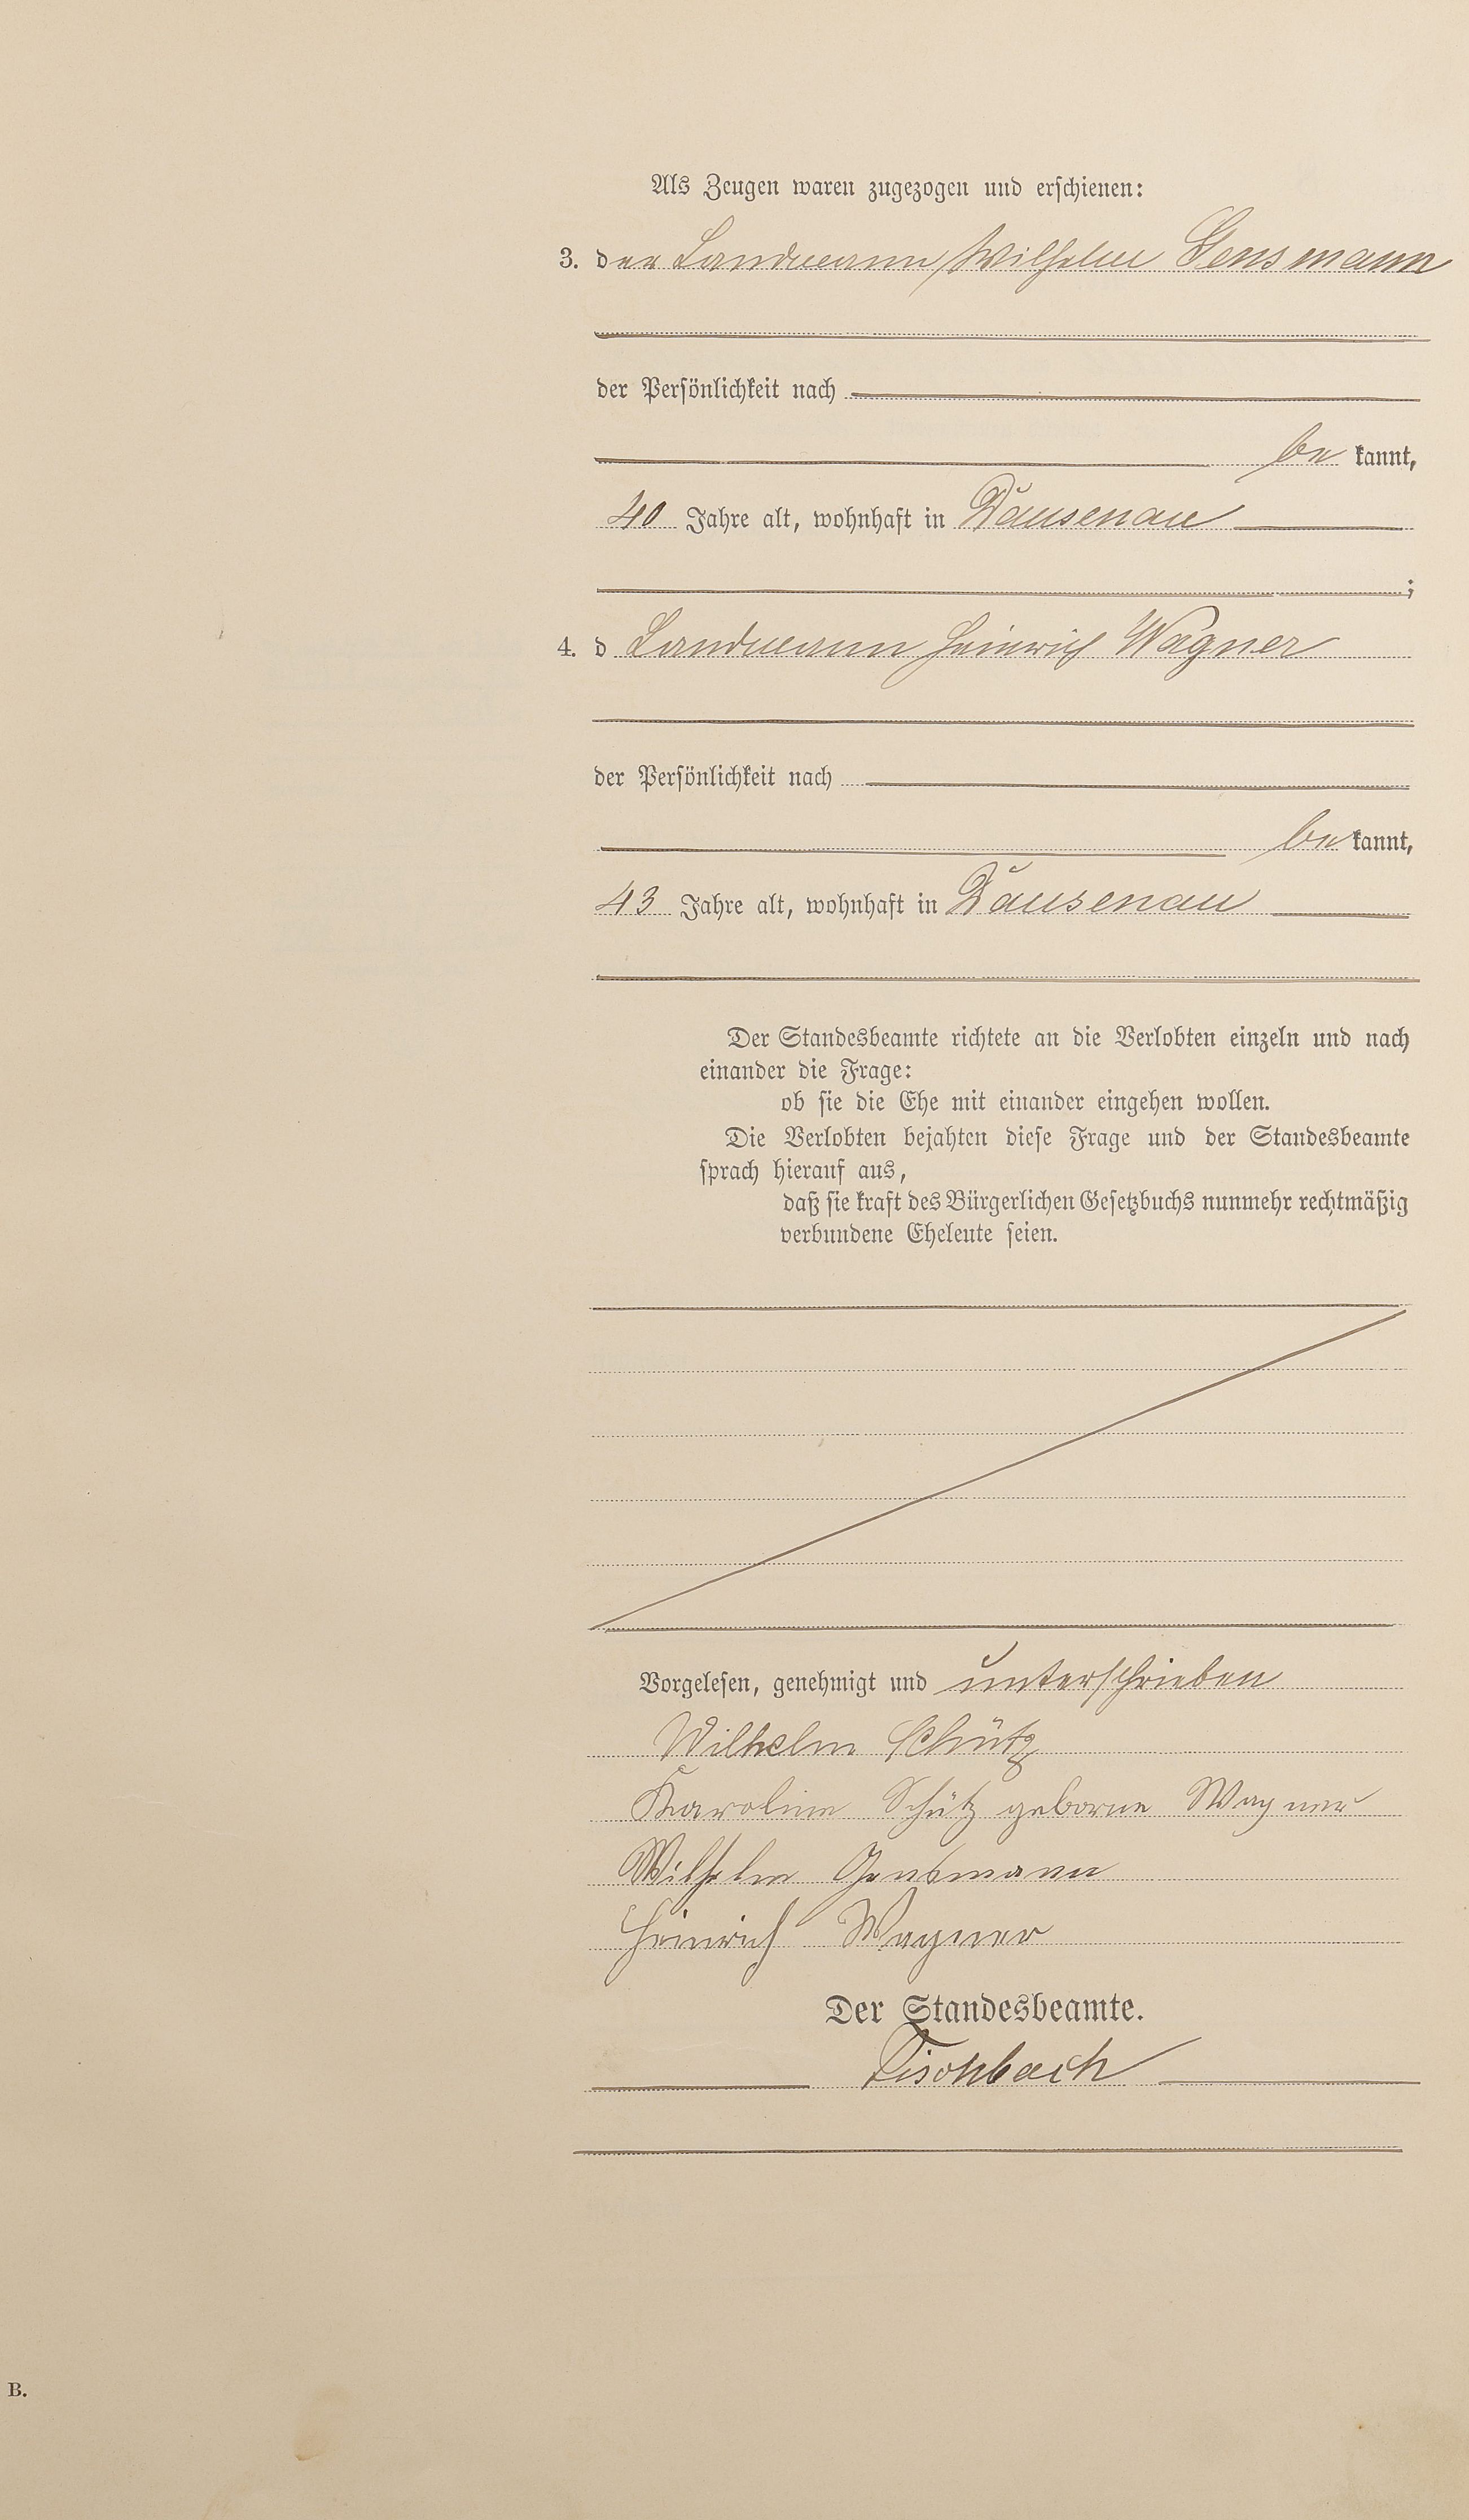 Als Zeugen waren zugezogen und erschienen:
3. der Landmann Wilhelm Gensmann
der Persönlichkeit nach
be kannt,
40 Jahre alt, wohnhaft in Dausenau
;
4. d Landmann Heinrich Wagner
der Persönlichkeit nach
be kannt,
43 Jahre alt, wohnhaft in Dausenau
Der Standesbeamte richtete an die Verlobten einzeln und nach
einander die Frage:
ob sie die Ehe mit einander eingehen wollen.
Die Verlobten bejahten diese Frage und der Standesbeamte
sprach hierauf aus,
daß sie kraft des Bürgerlichen Gesetzbuchs nunmehr rechtmäßig
verbundene Eheleute seien.
Vorgelesen, genehmigt und unterschrieben
Wilhelm Schütz
Karoline Schütz geborne Wagner
Wilhelm Gensmann
Heinrich Wagner
Der Standesbeamte.
Fischbach
B.